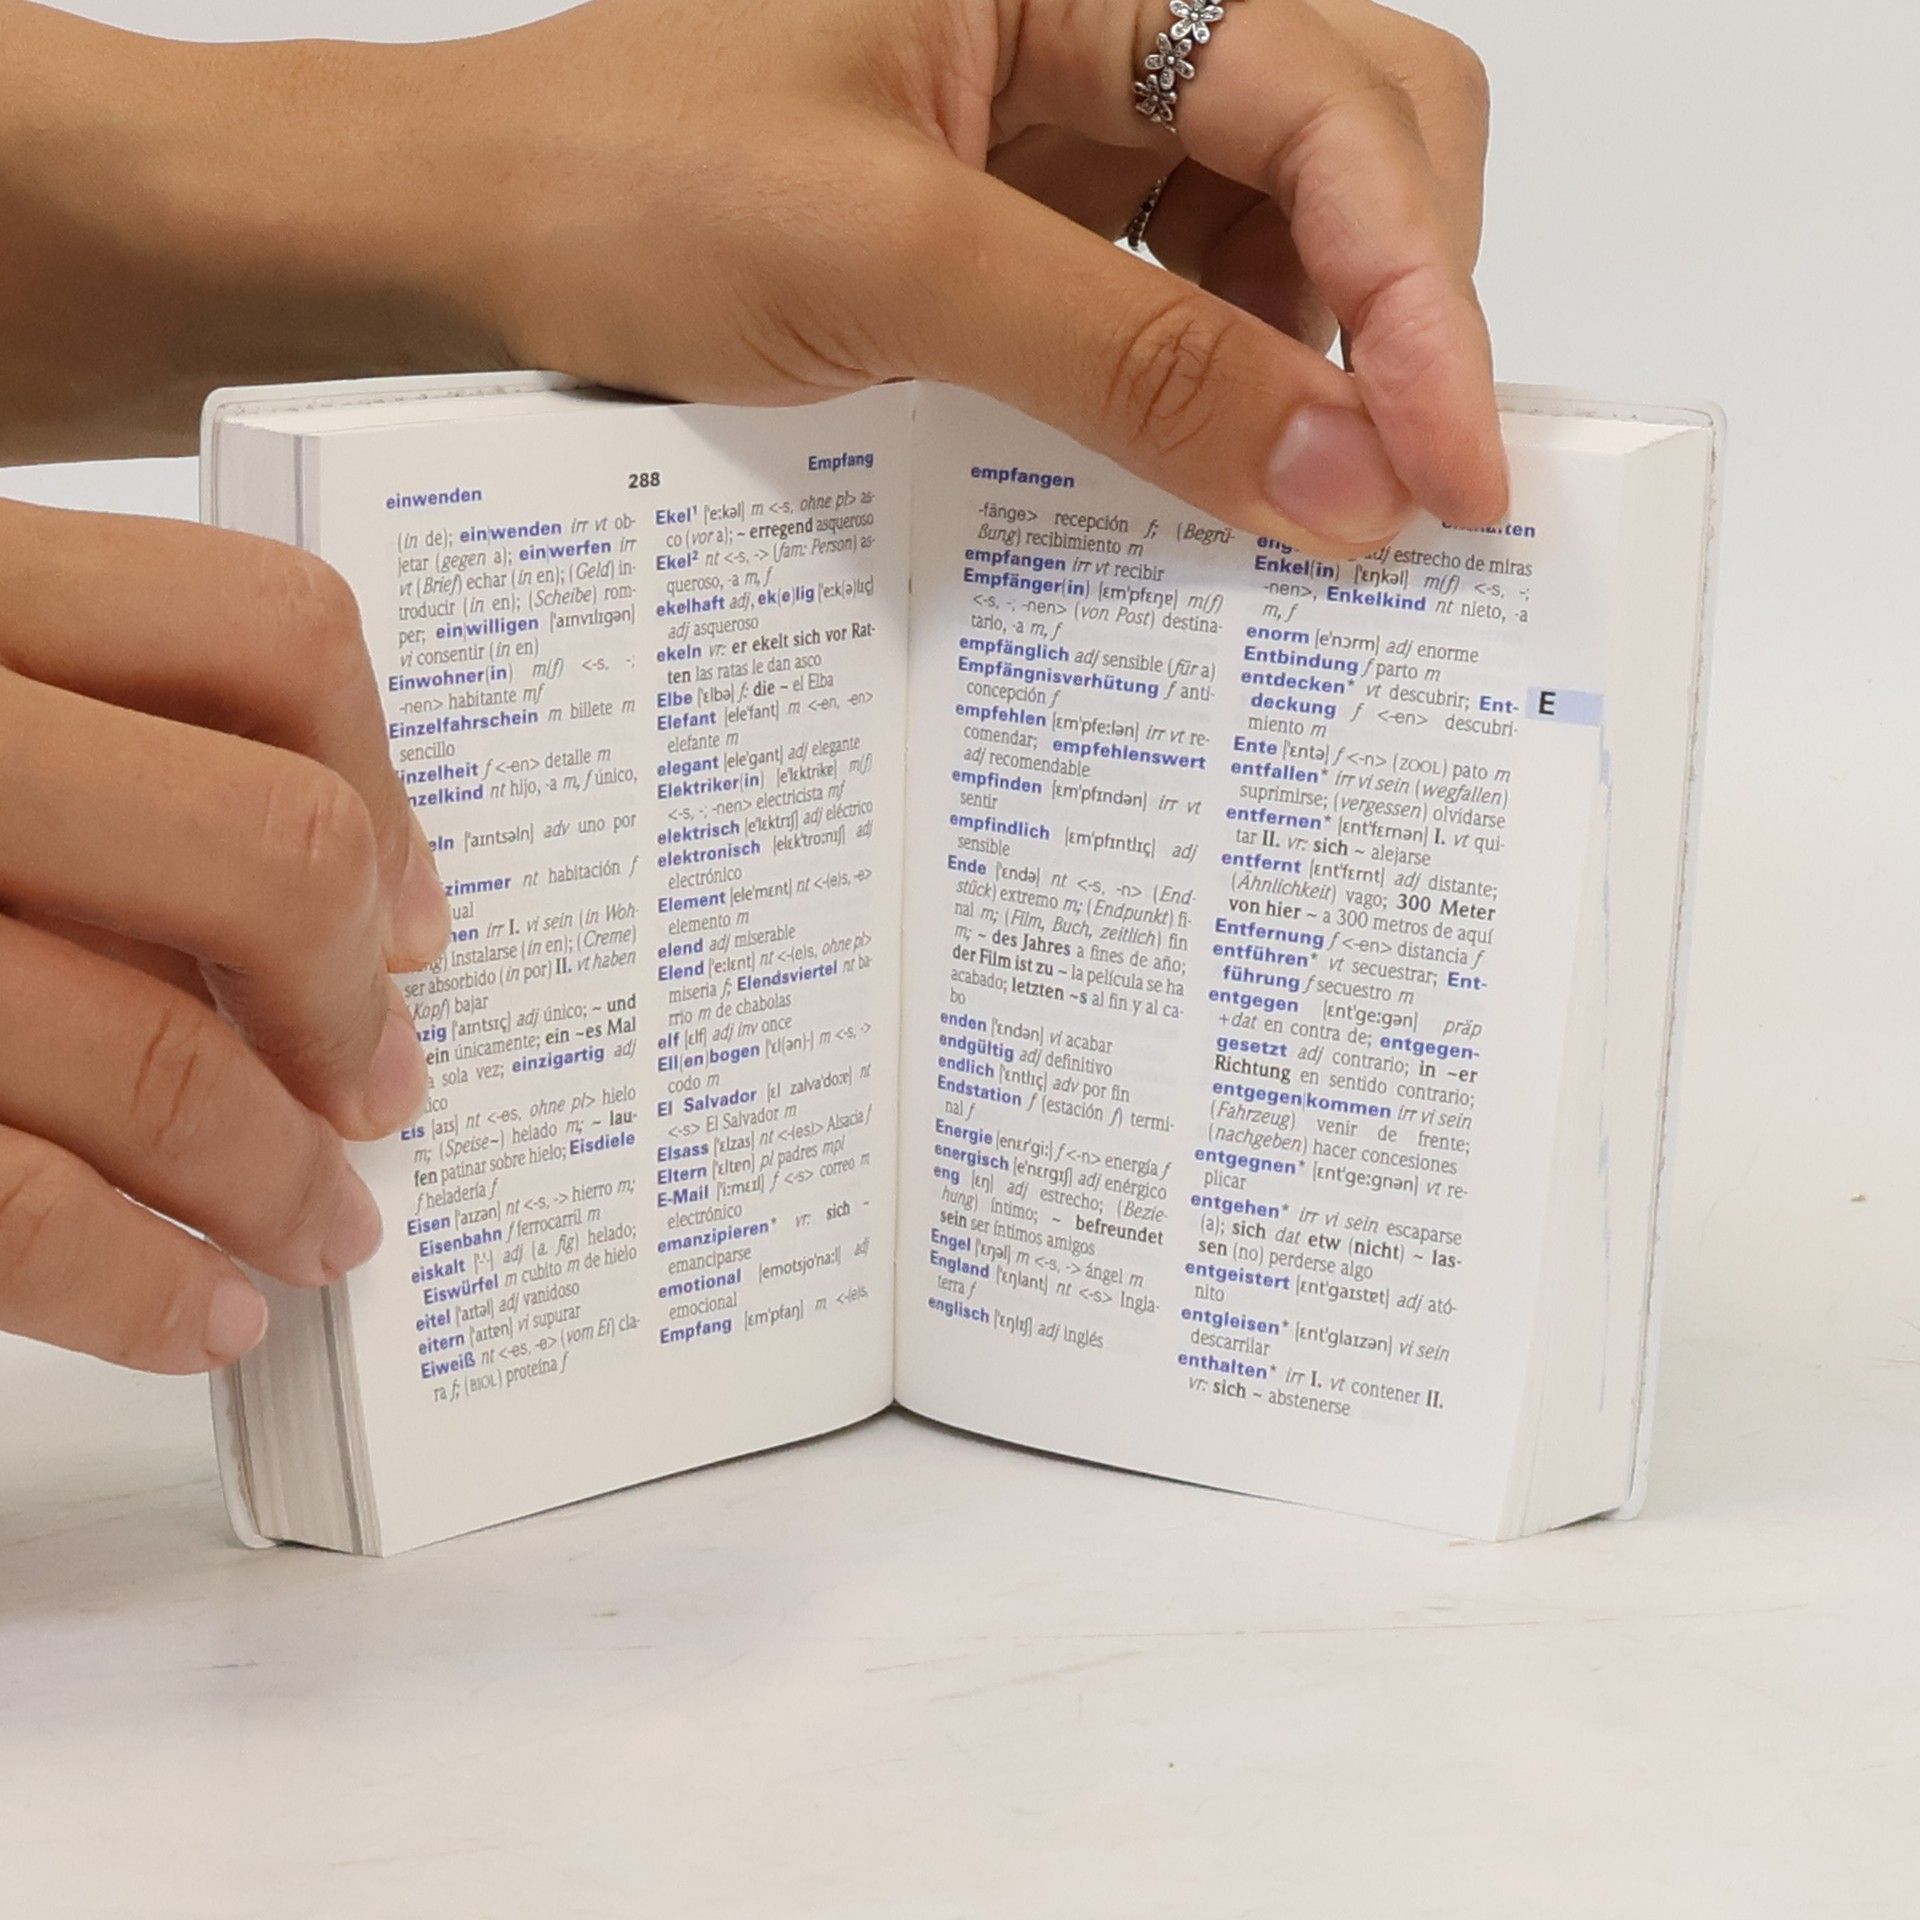 einwenden
288
Empfang
(in de); ein|wenden irr vt ob-
jetar (gegen a); ein|werfen irr
vt (Brief) echar (in en); (Geld) in-
troducir (in en); (Scheibe) rom-
per; ein|willigen ['aɪnvɪlɪgən]
vi consentir (in en)
Einwohner(in) m(f) <-s, -;
-nen> habitante mf
Einzelfahrschein m billete m
sencillo
inzelheit f <-en> detalle m
nzelkind nt hijo, -a m, f único,
eln ['aɪntsəln] adv uno por
zimmer nt habitación f
ual
irr I. vi sein (in Woh-
instalarse (in en); (Creme)
ser absorbido (in por) II. vt haben
(Kopf) bajar
zig ['aɪntsɪç] adj único; ~ und
ein únicamente; ein ~es Mal
a sola vez; einzigartig adj
ico
Eis [aɪs] nt <-es, ohne pl> hielo
m; (Speise~) helado m; ~ lau-
fen patinar sobre hielo; Eisdiele
f heladería f
Eisen ['aɪzən] nt <-s, -> hierro m;
Eisenbahn f ferrocarril m
eiskalt ['-'-] adj (a. fig) helado;
Eiswürfel m cubito m de hielo
eitel ['aɪtəl] adj vanidoso
eitern ['aɪtɐn] vi supurar
Eiweiß nt <-es, -e> (vom Ei) cla-
ra f; (BIOL) proteína f
Ekel¹ ['e:kəl] m <-s, ohne pl> as-
co (vor a); ~ erregend asqueroso
Ekel² nt <-s, -> (fam: Person) as-
queroso, -a m, f
ekelhaft adj, ek(e)lig ['e:k(ə)lɪç]
adj asqueroso
ekeln vr: er ekelt sich vor Rat-
ten las ratas le dan asco
Elbe ['ɛlbə] f: die ~ el Elba
Elefant [ele'fant] m <-en, -en>
elefante m
elegant [ele'gant] adj elegante
Elektriker(in) [e'lɛktrikɐ] m(f)
<-s, -; -nen> electricista mf
elektrisch [e'lɛktrɪʃ] adj eléctrico
elektronisch [elɛk'tro:nɪʃ] adj
electrónico
Element [ele'mɛnt] nt <-(e)s, -e>
elemento m
elend adj miserable
Elend ['e:lɛnt] nt <-(e)s, ohne pl>
miseria f; Elendsviertel nt ba-
rrio m de chabolas
elf [ɛlf] adj inv once
Ell(en)bogen ['ɛl(ən)-] m <-s, ->
codo m
El Salvador [ɛl zalva'do:ɐ] nt
<-s> El Salvador m
Elsass ['ɛlzas] nt <-(es)> Alsacia f
Eltern ['ɛltɐn] pl padres mpl
E-Mail ['i:mɛɪl] f <-s> correo m
electrónico
emanzipieren* vr: sich ~
emanciparse
emotional [emotsjo'na:l] adj
emocional
Empfang [ɛm'pfaŋ] m <-(e)s,
empfangen
-fänge> recepción f; (Begrü-
ßung) recibimiento m
empfangen irr vt recibir
Empfänger(in) [ɛm'pfɛŋɐ] m(f)
<-s, -; -nen> (von Post) destina-
tario, -a m, f
empfänglich adj sensible (für a)
Empfängnisverhütung f anti-
concepción f
empfehlen [ɛm'pfe:lən] irr vt re-
comendar; empfehlenswert
adj recomendable
empfinden [ɛm'pfɪndən] irr vt
sentir
empfindlich [ɛm'pfɪntlɪç] adj
sensible
Ende ['ɛndə] nt <-s, -n> (End-
stück) extremo m; (Endpunkt) fi-
nal m; (Film, Buch, zeitlich) fin
m; ~ des Jahres a fines de año;
der Film ist zu ~ la película se ha
acabado; letzten ~s al fin y al ca-
bo
enden ['ɛndən] vi acabar
endgültig adj definitivo
endlich ['ɛntlɪç] adv por fin
Endstation f (estación f) termi-
nal f
Energie [enɛr'gi:] f <-n> energía f
energisch [e'nɛrgɪʃ] adj enérgico
eng [ɛŋ] adj estrecho; (Bezie-
hung) íntimo; ~ befreundet
sein ser íntimos amigos
Engel ['ɛŋəl] m <-s, -> ángel m
England ['ɛŋlant] nt <-s> Ingla-
terra f
englisch ['ɛŋlɪʃ] adj inglés
eng adj estrecho de miras
Enkel(in) ['ɛŋkəl] m(f) <-s, -;
-nen>, Enkelkind nt nieto, -a
m, f
enorm [e'nɔrm] adj enorme
Entbindung f parto m
entdecken* vt descubrir; Ent-
deckung f <-en> descubri-
miento m
Ente ['ɛntə] f <-n> (ZOOL) pato m
entfallen* irr vi sein (wegfallen)
suprimirse; (vergessen) olvidarse
entfernen* [ɛnt'fɛrnən] I. vt qui-
tar II. vr: sich ~ alejarse
entfernt [ɛnt'fɛrnt] adj distante;
(Ähnlichkeit) vago; 300 Meter
von hier ~ a 300 metros de aquí
Entfernung f <-en> distancia f
entführen* vt secuestrar; Ent-
führung f secuestro m
entgegen [ɛnt'ge:gən] präp
+dat en contra de; entgegen-
gesetzt adj contrario; in ~er
Richtung en sentido contrario;
entgegen|kommen irr vi sein
(Fahrzeug) venir de frente;
(nachgeben) hacer concesiones
entgegnen* [ɛnt'ge:gnən] vt re-
plicar
entgehen* irr vi sein escaparse
(a); sich dat etw (nicht) ~ las-
sen (no) perderse algo
entgeistert [ɛnt'gaɪstɐt] adj ató-
nito
entgleisen* [ɛnt'glaɪzən] vi sein
descarrilar
enthalten* irr I. vt contener II.
vr: sich ~ abstenerse
E